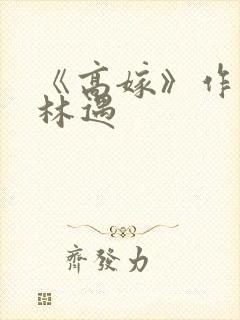 《高嫁》作
林遇
齊發力